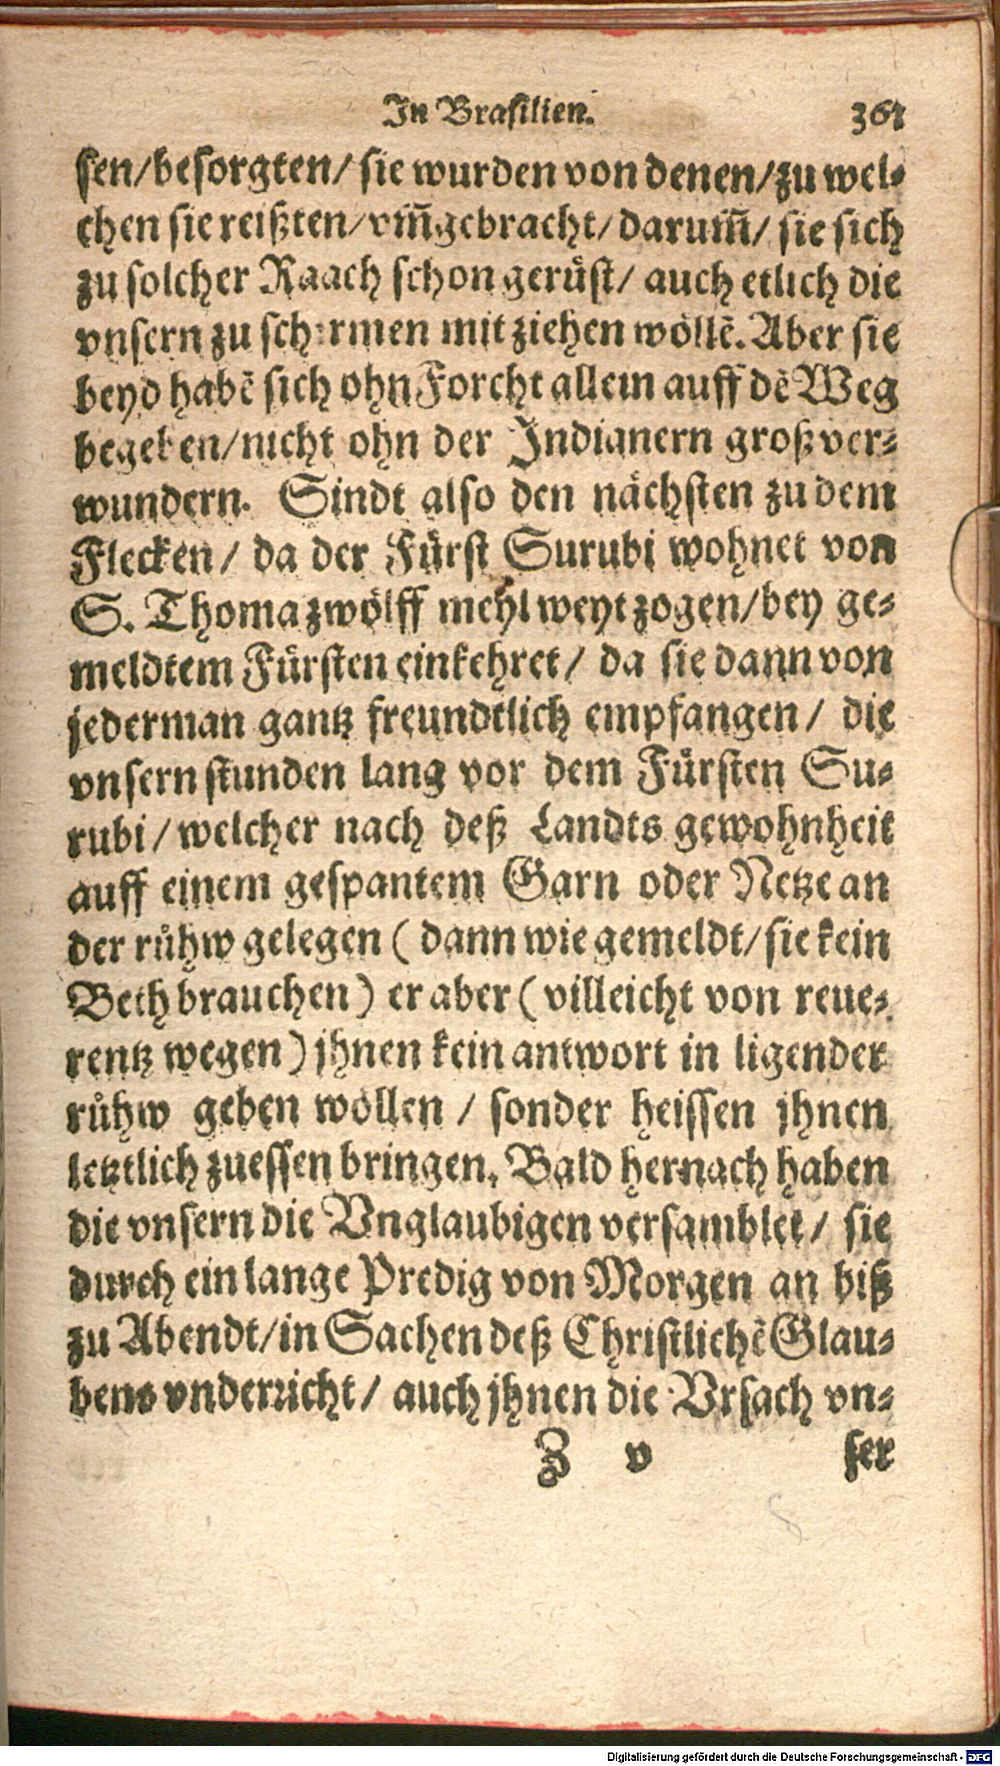 In Brasilien. 361
sen/besorgten/ sie wurden von denen/zu wel-
chen sie reißten/vm̃gebracht/darum̃/ sie sich
zu solcher Raach schon gerüst/ auch etlich die
vnsern zu schirmen mit ziehen wöllē. Aber sie
beyd habē sich ohn Forcht allein auff dē Weg
begeben/nicht ohn der Indianern groß ver-
wundern. Sindt also den nächsten zu dem
Flecken/ da der Fürst Surubi wohnet von
S. Thoma zwölff meyl weyt zogen/bey ge-
meldtem Fürsten einkehret/ da sie dann von
jederman gantz freundtlich empfangen/ die
vnsern stunden lang vor dem Fürsten Su-
rubi/welcher nach deß Landts gewohnheit
auff einem gespantem Garn oder Netze an
der růhw gelegen (dann wie gemeldt/sie kein
Beth brauchen) er aber (villeicht von reue-
rentz wegen) jhnen kein antwort in ligender
růhw geben wöllen / sonder heissen jhnen
letztlich zuessen bringen. Bald hernach haben
die vnsern die Vnglaubigen versamblet/ sie
durch ein lange Predig von Morgen an biß
zu Abendt/in Sachen deß Christlichē Glau-
bens vnderricht/ auch jhnen die Vrsach vn-
Z v ser
Digitalisierung gefördert durch die Deutsche Forschungsgemeinschaft - DFG